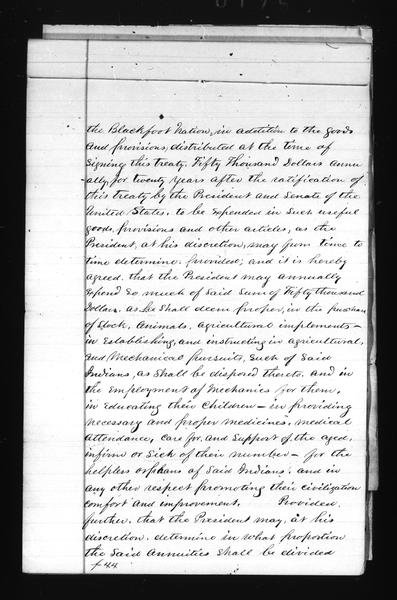 the Blackfoot Nation, in addition to the goods
and provisions, distributed at the time of
signing this treaty, Fifty Thousand Dollars annu
-ally, for twenty years after the ratification of
this treaty by the President and Senate of the
United States, to be expended in such useful
goods, provisions and other articles, as the
President, at his discretion, may from time to
time determine. provided; and it is hereby
agreed. that the President may annually
expend so much of said sum of Fifty thousand
Dollars. as he shall deem proper, in the purchase
of Stock, Animals, agricultural implements -
in establishing, and instructing in agricultural,
and Mechanical pursuits, such of said
Indians, as shall be disposed thereto. and in
the employment of Mechanics for them,
in Educating their Children - in providing
necessary and proper medicines, medical
attendance, care for, and support of the aged,
infirm or Sick of their number - for the
helpless orphans of said Indians. and in
any other respect promoting their civilization
comfort and improvement. Provided.
further, that the President may, at his
discretion. determine in what proportion
the said Annuities shall be divided
f 44